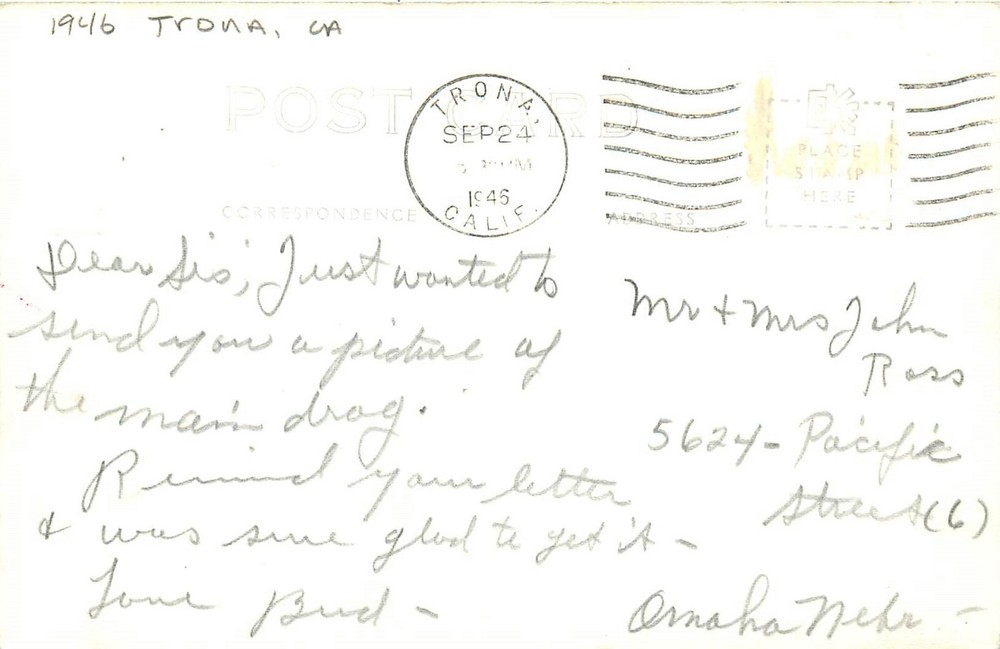 1946 TRONA, CA
POST CARD
TRONA,
SEP 24
PM
1946
CALIF.
EKC
PLACE
STAMP
HERE
CORRESPONDENCE
ADDRESS
Dear Sis, Just wanted to
send you a picture of
the main drag.
Received your letter
& was sure glad to get it -
Love Bud -
Mr + Mrs John
Ross
5624 - Pacific
Street (6)
Omaha Nebr -